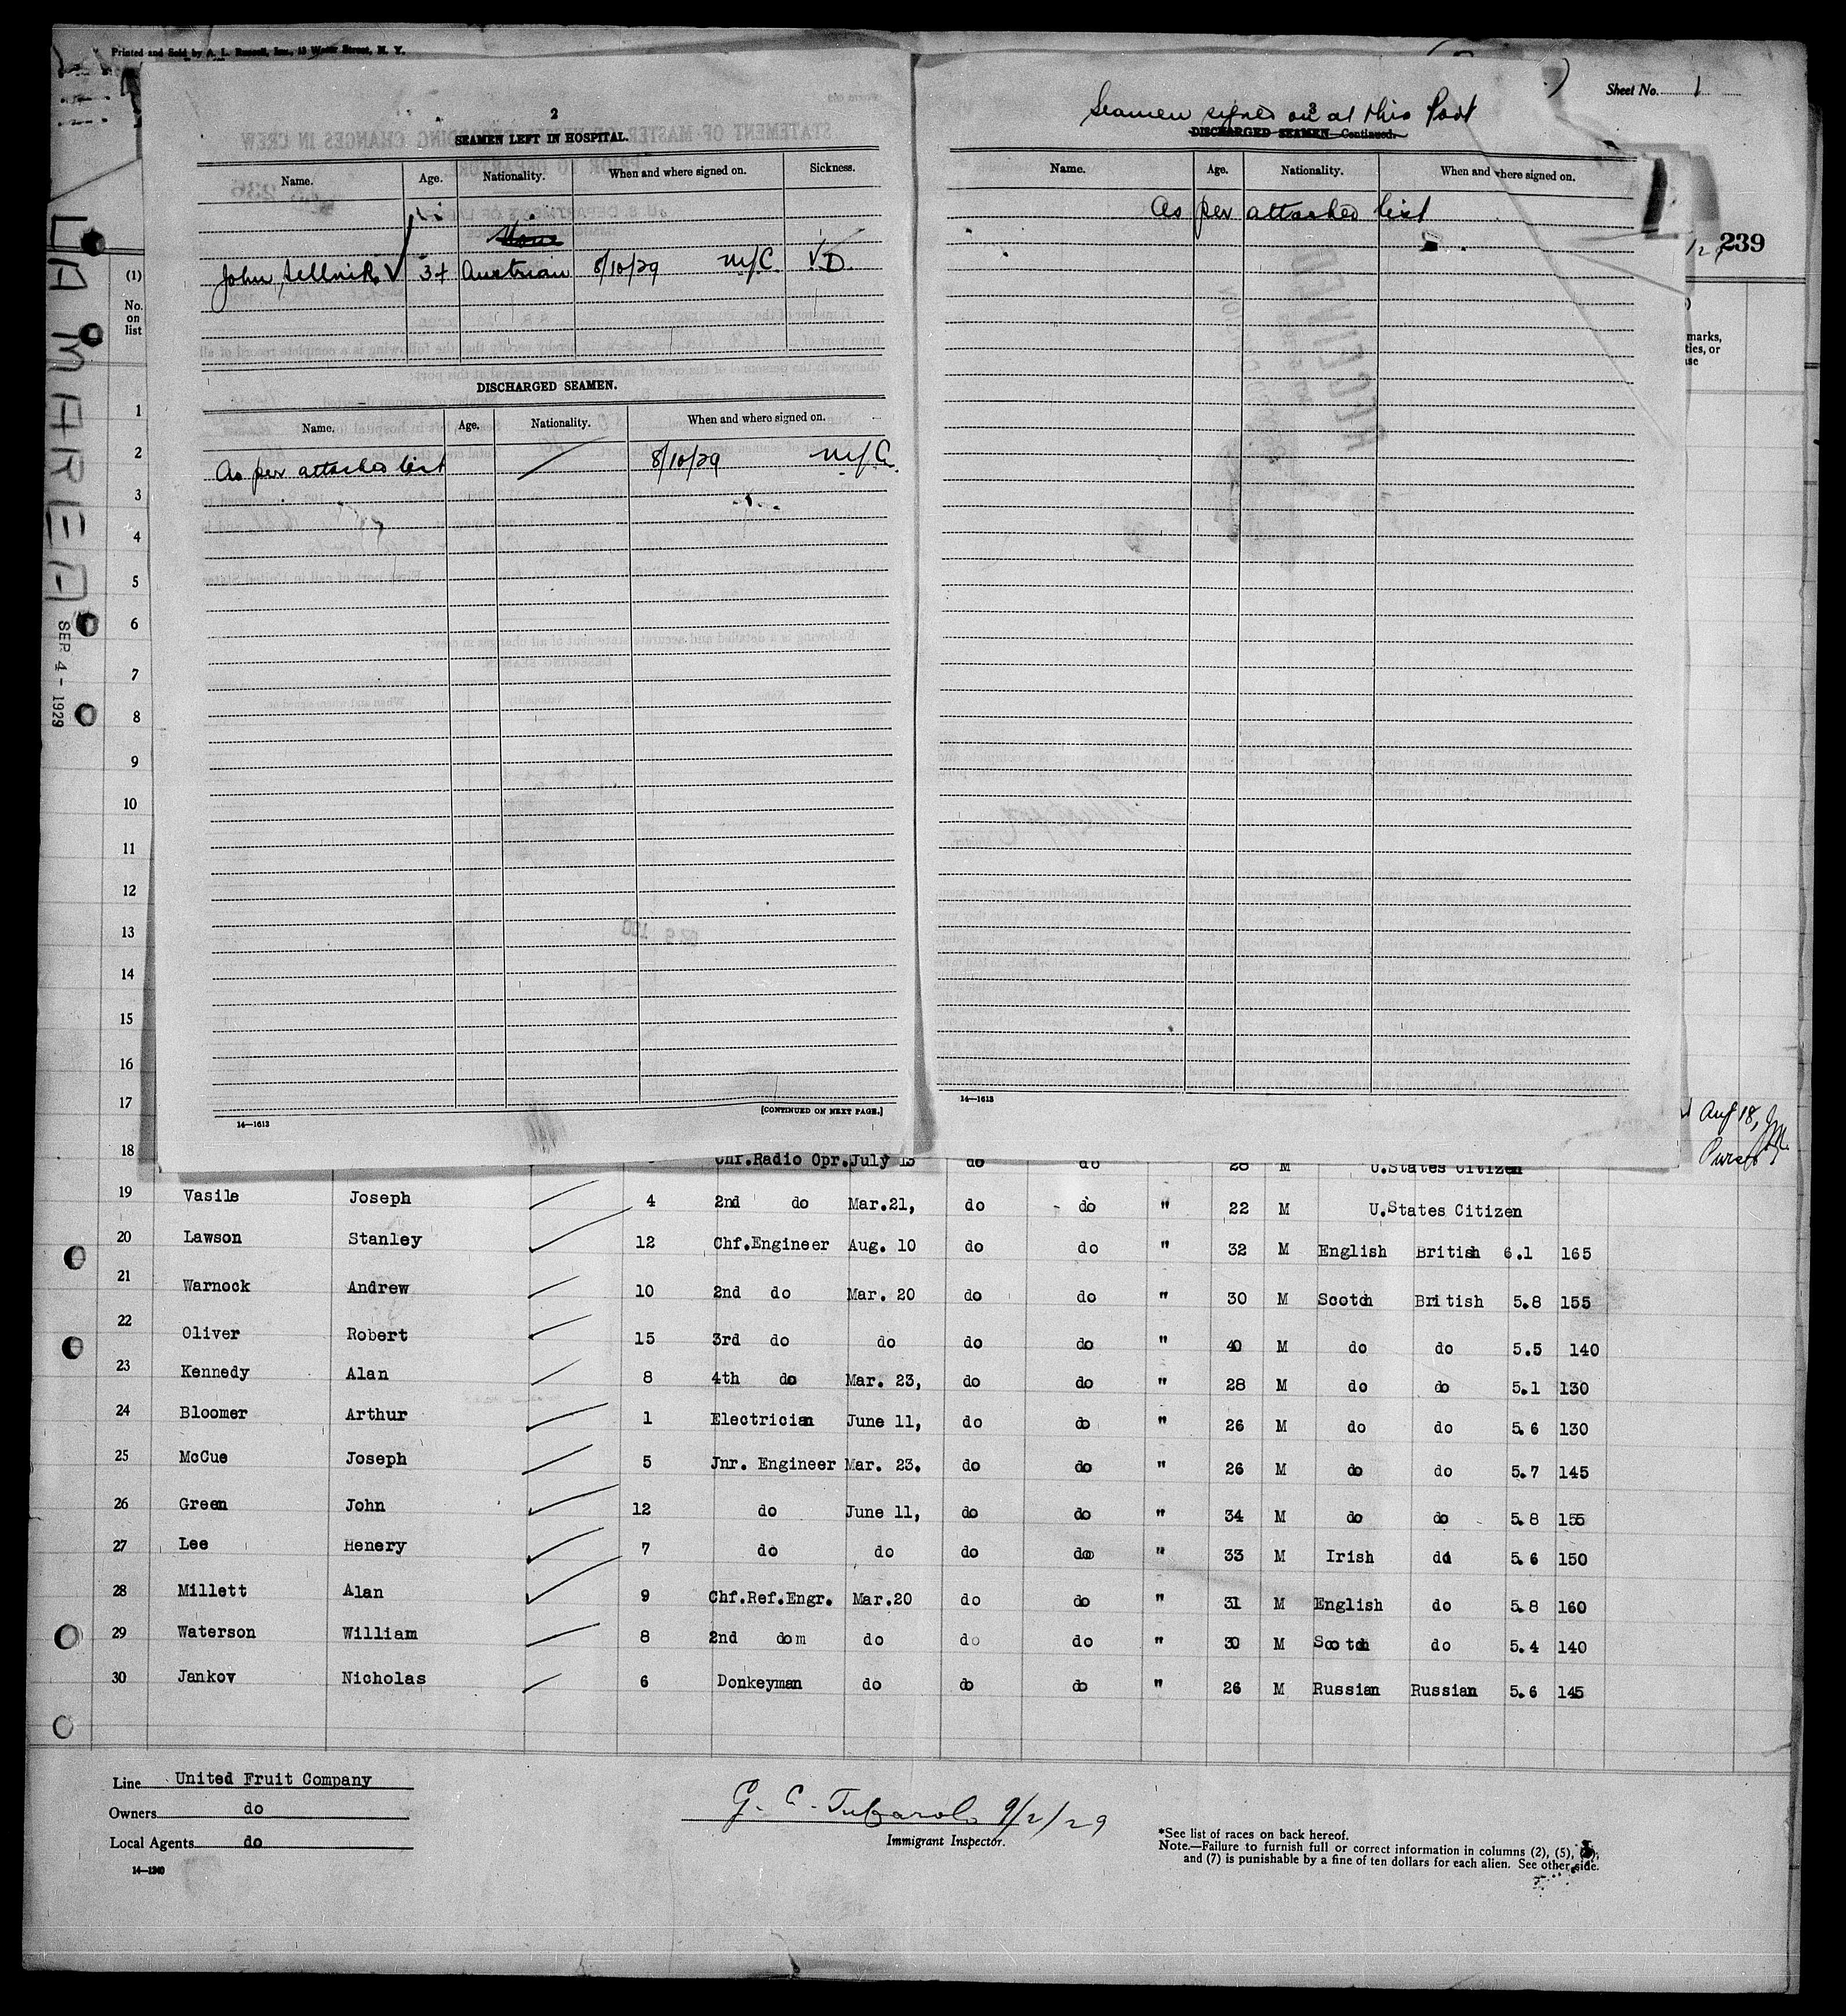 Printed and Sold by A. L. Russell, Inc., 13 Water Street, N. Y.
Sheet No. 1
239
LA MAREA
SEP 4 - 1929
2
SEAMEN LEFT IN HOSPITAL.
Name. Age. Nationality. When and where signed on. Sickness.
None
John 34 Austrian 8/10/29 N/C. VD.
DISCHARGED SEAMEN.
Name. Age. Nationality. When and where signed on.
As per attached list 8/10/29 N/C.
[CONTINUED ON NEXT PAGE.]
14—1613
Seamen signed on at this Port
3
DISCHARGED SEAMEN—Continued.
Name. Age. Nationality. When and where signed on.
As per attached list
14—1613
(1)
No. on list
marks,
ties, or
se
1
2
3
4
5
6
7
8
9
10
11
12
13
14
15
16
17 Aug 18,
18 Chf.Radio Opr. July 15 do do 28 M U.States Citizen
19 Vasile Joseph 4 2nd do Mar.21, do do " 22 M U.States Citizen
20 Lawson Stanley 12 Chf.Engineer Aug. 10 do do " 32 M English British 6.1 165
21 Warnock Andrew 10 2nd do Mar. 20 do do " 30 M Scotch British 5.8 155
22 Oliver Robert 15 3rd do do do do " 40 M do do 5.5 140
23 Kennedy Alan 8 4th do Mar. 23, do do " 28 M do do 5.1 130
24 Bloomer Arthur 1 Electrician June 11, do do " 26 M do do 5.6 130
25 McCue Joseph 5 Jnr. Engineer Mar. 23. do do " 26 M do do 5.7 145
26 Green John 12 do June 11, do do " 34 M do do 5.8 155
27 Lee Henery 7 do do do do " 33 M Irish do 5.6 150
28 Millett Alan 9 Chf.Ref.Engr. Mar.20 do do " 31 M English do 5.8 160
29 Waterson William 8 2nd dom do do do " 30 M Scotch do 5.4 140
30 Jankov Nicholas 6 Donkeyman do do do " 26 M Russian Russian 5.6 145
Line United Fruit Company
Owners do
Local Agents do
14—1240
G. C. 9/2/29
Immigrant Inspector.
*See list of races on back hereof.
Note.—Failure to furnish full or correct information in columns (2), (5),
and (7) is punishable by a fine of ten dollars for each alien. See other side.